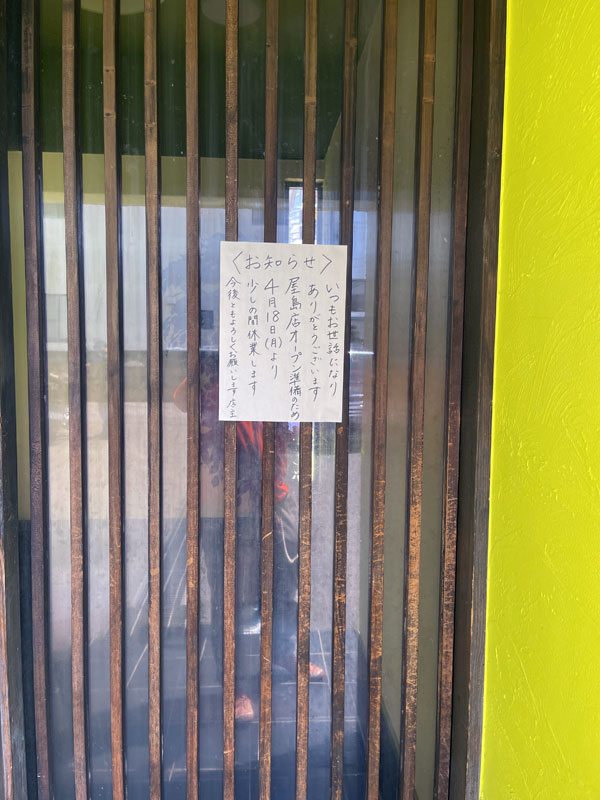 〈お知らせ〉
いつもお世話になり
ありがとうございます
屋島店オープン準備のため
4月18日(月)より
少しの間休業します
今後ともよろしくお願いします 店主